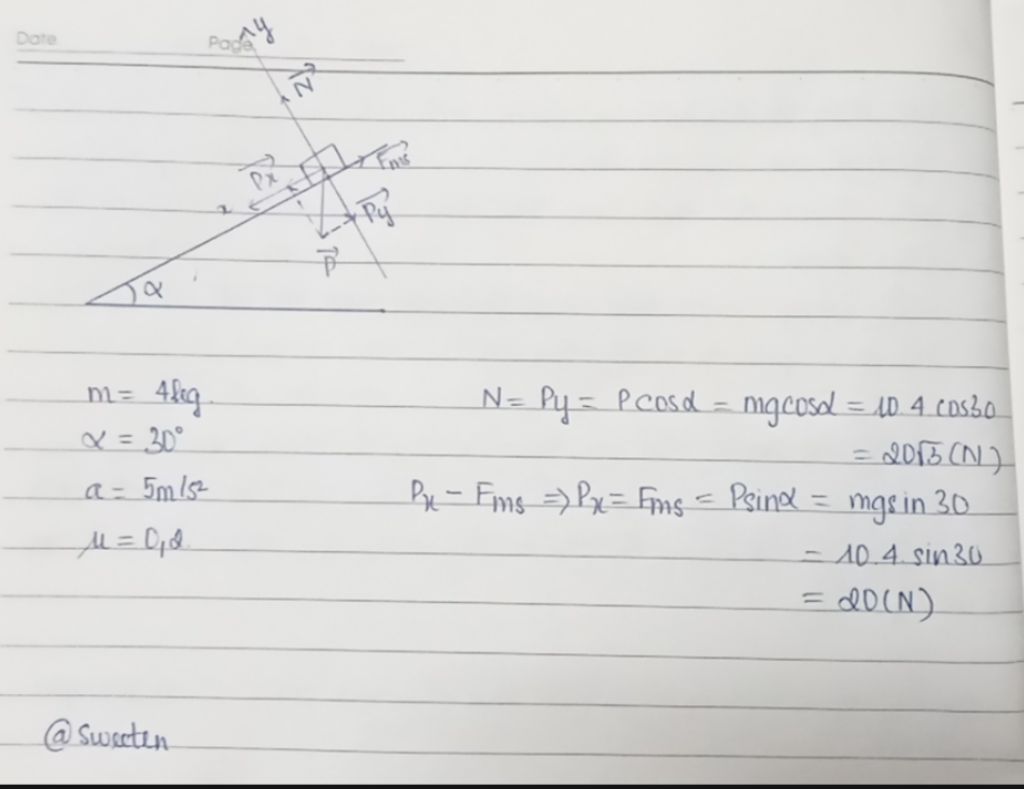 Date
Page
y
N
Px
Fms
x
Py
P
α
m = 4kg
α = 30°
a = 5m/s²
μ = 0,2
N = Py = Pcosα = mgcosα = 10.4 cos30
= 20√3 (N)
Px - Fms => Px = Fms = Psinα = mgsin 30
= 10.4.sin30
= 20(N)
@ Sweeten